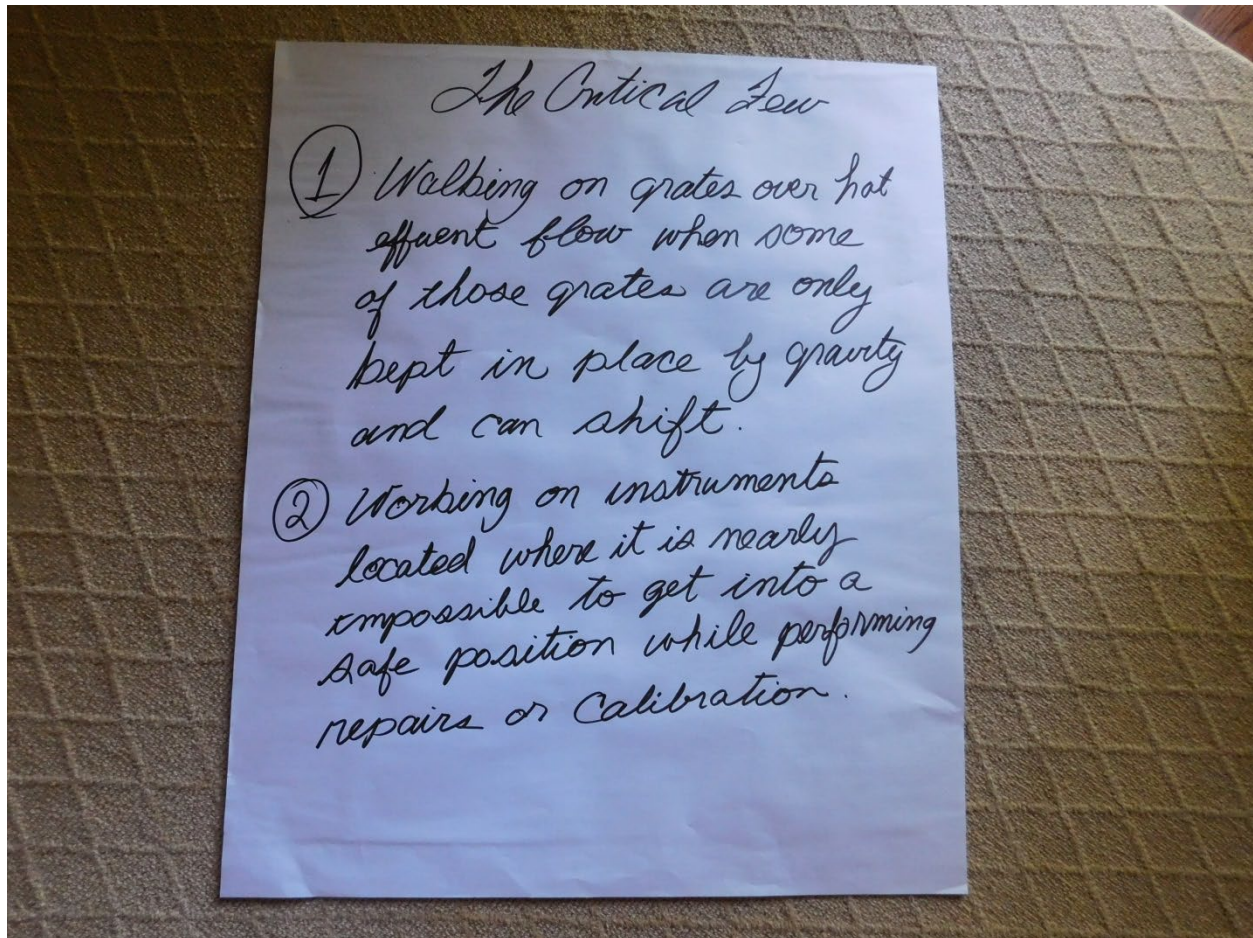 The Critical Few
1 Walking on grates over hot
effuent flow when some
of those grates are only
kept in place by gravity
and can shift.
2 Working on instruments
located where it is nearly
impossible to get into a
safe position while performing
repairs or Calibration.